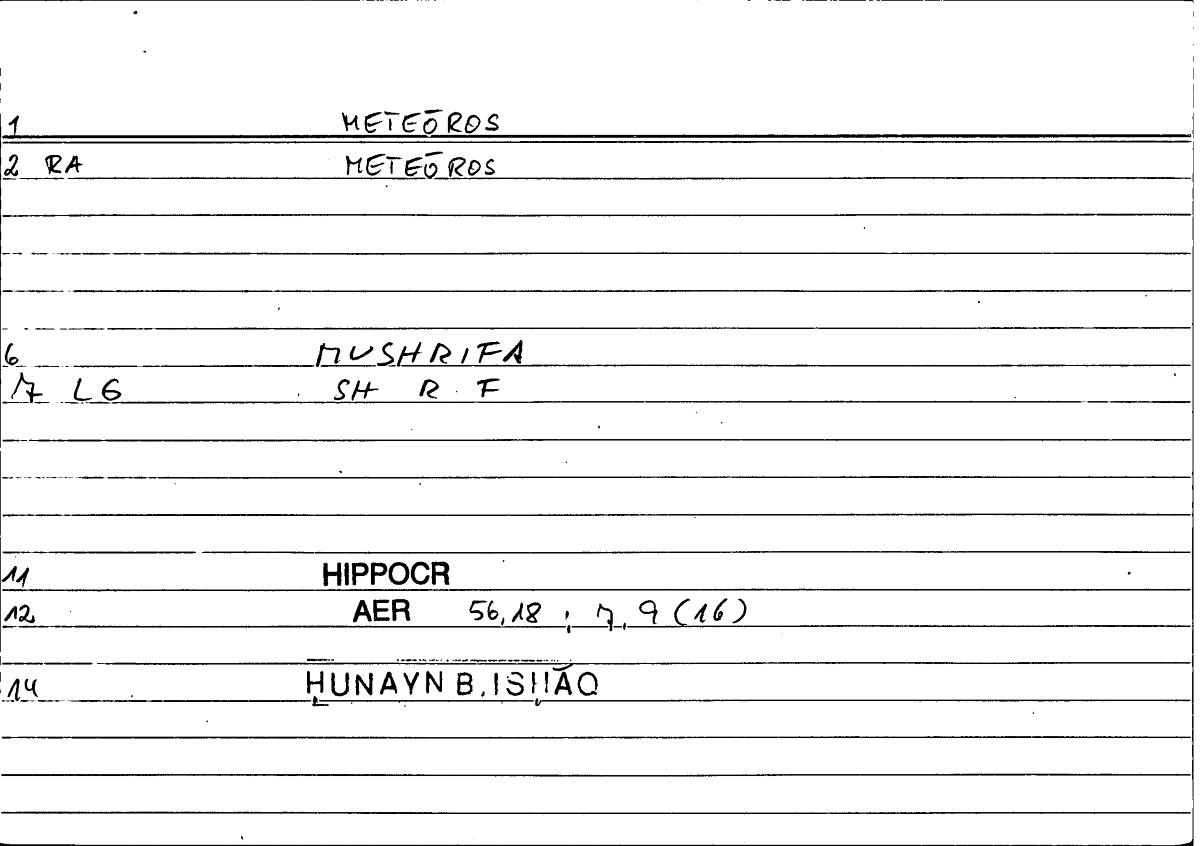 1 METEŌROS
2 RA METEŌROS
6 MUSHRIFA
7 LG SH R F
11 HIPPOCR
12 AER 56,18 ; 7,9 (16)
14 ḤUNAYN B. ISḤĀQ